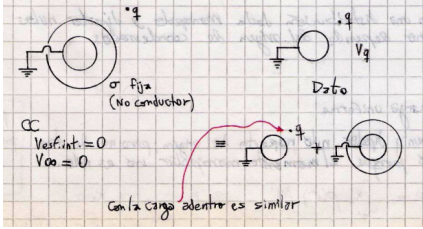 ·q
·q
Vq
σ fija
(No conductor)
Dato
CC
Vesf.int.=0
V∞=0
≡
·q
+
Con la carga adentro es similar